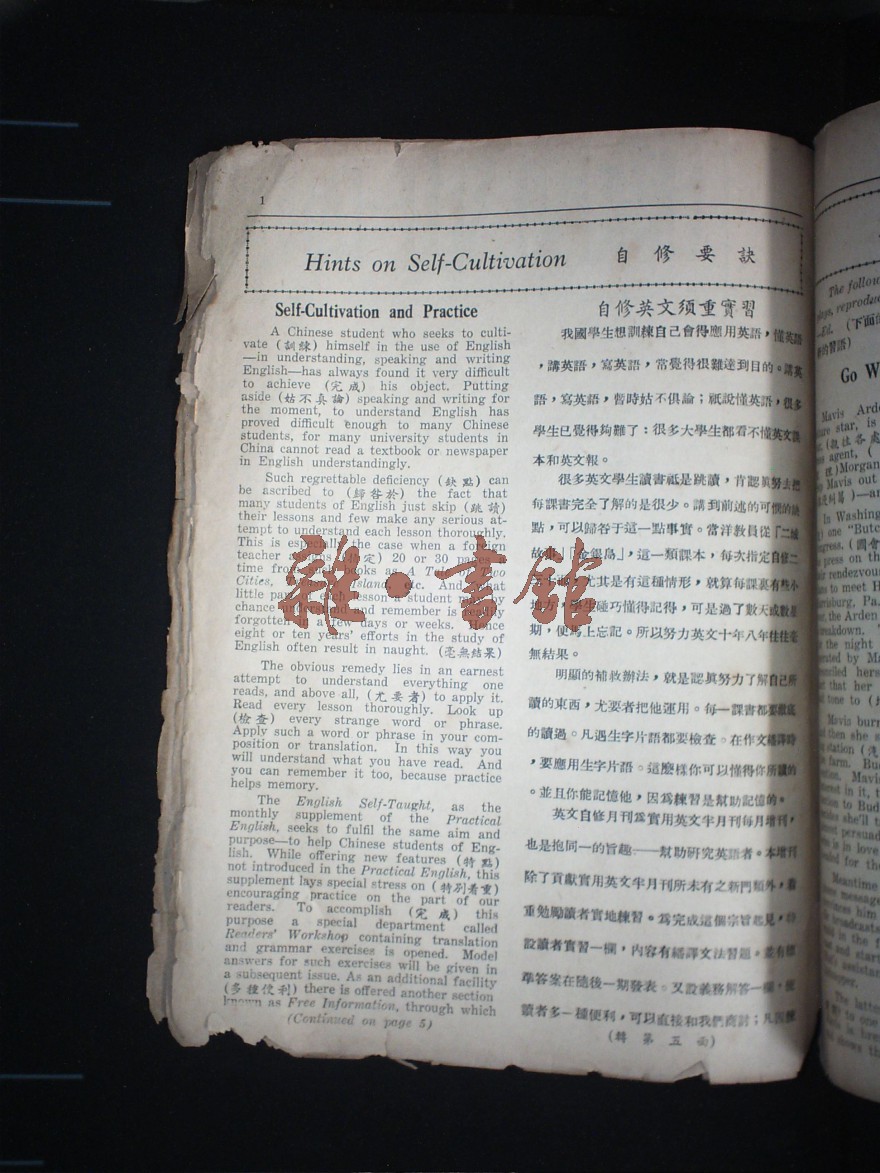 1
Hints on Self-Cultivation 自修要訣
Self-Cultivation and Practice
A Chinese student who seeks to culti-
vate (訓練) himself in the use of English
—in understanding, speaking and writing
English—has always found it very difficult
to achieve (完成) his object. Putting
aside (姑不具論) speaking and writing for
the moment, to understand English has
proved difficult enough to many Chinese
students, for many university students in
China cannot read a textbook or newspaper
in English understandingly.
Such regrettable deficiency (缺點) can
be ascribed to (歸咎於) the fact that
many students of English just skip (跳讀)
their lessons and few make any serious at-
tempt to understand each lesson thoroughly.
This is especially the case when a foreign
teacher 20 or 30
time from books as A Two
Cities, Island, etc. And what
little part of each lesson a student may
chance understand and remember is
forgotten in a few days or weeks. Hence
eight or ten years' efforts in the study of
English often result in naught. (毫無結果)
The obvious remedy lies in an earnest
attempt to understand everything one
reads, and above all, (尤要者) to apply it.
Read every lesson thoroughly. Look up
(檢查) every strange word or phrase.
Apply such a word or phrase in your com-
position or translation. In this way you
will understand what you have read. And
you can remember it too, because practice
helps memory.
The English Self-Taught, as the
monthly supplement of the Practical
English, seeks to fulfil the same aim and
purpose—to help Chinese students of Eng-
lish. While offering new features (特點)
not introduced in the Practical English, this
supplement lays special stress on (特別着重)
encouraging practice on the part of our
readers. To accomplish (完成) this
purpose a special department called
Readers' Workshop containing translation
and grammar exercises is opened. Model
answers for such exercises will be given in
a subsequent issue. As an additional facility
(多種便利) there is offered another section
known as Free Information, through which
(Continued on page 5)
自修英文須重實習
我國學生想訓練自己會得應用英語，懂英語
，講英語，寫英語，常覺得很難達到目的。講英
語，寫英語，暫時姑不俱論；祇說懂英語，很多
學生已覺得夠難了：很多大學生都看不懂英文課
本和英文報。
很多英文學生讀書祇是跳讀，肯認眞努去把
每課書完全了解的是很少。講到前述的可恨的缺
點，可以歸咎于這一點事實。當洋教員從「二城
故事」「金銀島」，這一類課本，每次指定自修二
三十面，尤其是有這種情形，就算每課裏有些小
地方，學生碰巧懂得記得，可是過了數天或數星
期，便馬上忘記。所以努力英文十年八年往往毫
無結果。
明顯的補救辦法，就是認眞努力了解自己所
讀的東西，尤要者把他運用。每一課書都要徹底
的讀過。凡遇生字片語都要檢查。在作文繙譯時
，要應用生字片語。這麼樣你可以懂得你所讀的
。並且你能記憶他，因爲練習是幫助記憶的。
英文自修月刊爲實用英文半月刊每月增刊，
也是抱同一的旨趣——幫助研究英語者。本增刊
除了貢獻實用英文半月刊所未有之新門類外，着
重勉勵讀者實地練習。爲完成這個宗旨起見，特
設讀者實習一欄，內容有繙譯文法習題。並有標
準答案在隨後一期發表。又設義務解答一欄，使
讀者多一種便利，可以直接和我們商討；凡因種
(轉第五面)
雜·書館
The follow
plays, reproduce
—Ed. (下面的
的習語)
Go W
Mavis Arde
star, is
agent, (
Morgan
Mavis out
In Washing
one "Butc
(國會
press on th
rendezvous
to meet H
Pa.
er, the Arden
breakdown.
the night
by Ma
herse
that her
tone to
Mavis burn
then she s
station
farm. Bud
Mavis
in it, t
to Bud
she'll t
persuad
is in love
for the
Meantime
message
him
broadcasts
in the f
and start
assistan
The latter
to one
is brea
shows th